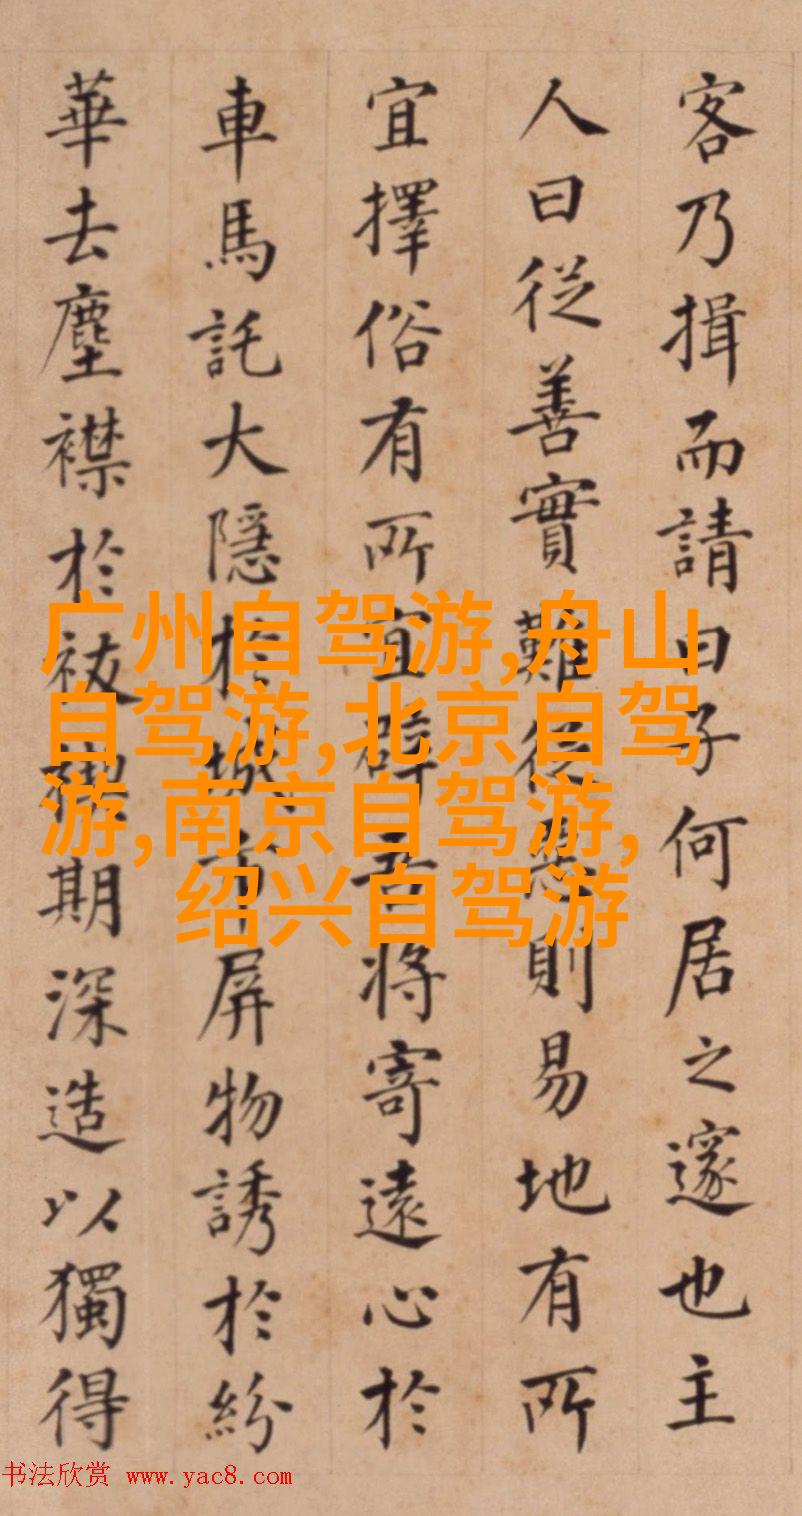 客乃揖而請曰子何居之邃也主
人曰從善實難從惡則易地有所
宜擇俗有所宜辟吾將寄遠心於
車馬託大隱於城市屏物誘於紛
華去塵襟於祓禊期深造以獨得
广州自驾游,舟山
自驾游,北京自驾
游,南京自驾游,
绍兴自驾游
书法欣赏 www.yac8.com